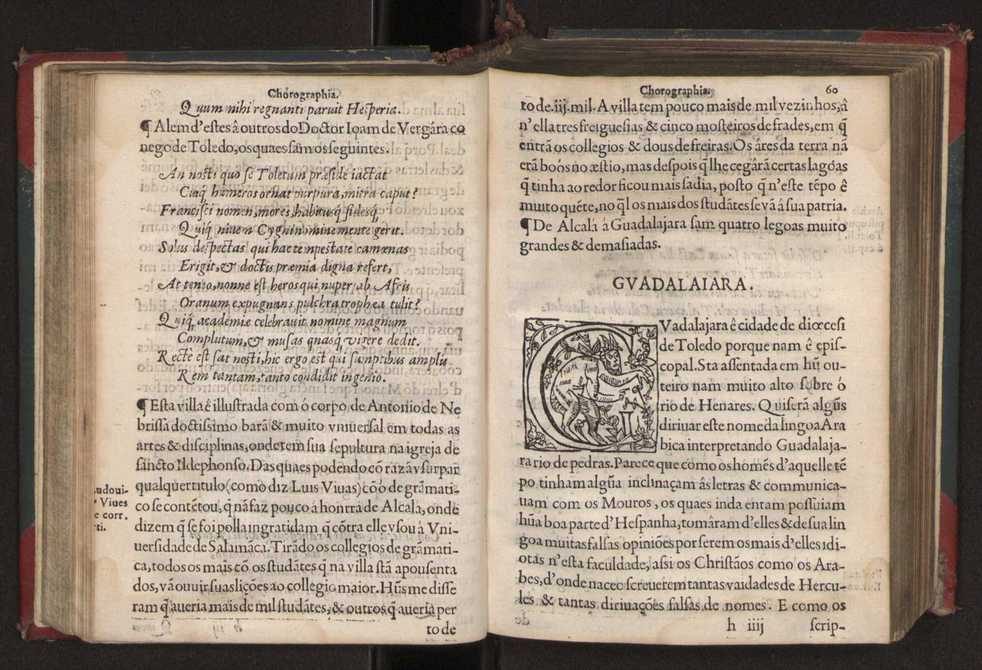 Chorographia.
Quum nihi regnanti paruit Hesperia.
¶ Alem d'estes â outros do Doctor Ioam de Vergára co
nego de Toledo, os quaes sam os seguintes.
An nosti quo se Toletum præside iactat
Cuiq̃ humeros ornat purpura, mitra caput?
Francisci nomen, mores, habitusq̃ fidesq̃,
Quiq̃ niuem Cygni nomine mente gerit.
Solus despectas qui hac tempestate camœnas
Erigit, & doctis præmia digna refert,
At tento, nonne est heros qui nuper ab Afris
Oranum expugnans pulchra trophea tulit?
Quiq̃ academie celebrauit nomine magnum
Complutum, & musas quasq̃ viuere dedit.
Recte est sat nosti, hic ergo est qui sumptibus amplũ
Rem tantam, tanto condidit ingenio.
¶ Esta villa ê illustrada com ó corpo de Antonio de Ne
brissa doctissimo barã & muito vniuersal em todas as
artes & disciplinas, onde tem sua sepultura na igreja de
sancto Ildephonso. Das quaes podendo cõ razã vsurpar
qualquer titulo (como diz Luis Viuas) cõ ó de grãmati-
co se contẽtou, q̃ nã faz pouco â honrra de Alcala, onde
dizem q̃ se foi polla ingratidam q̃ cõtra elle vsou â Vni-
uersidade de Salamãca. Tirãdo os collegios de grãmati-
ca, todos os mais cõ os studãtes q̃ na villa stã apousenta
dos, vã ouuir suas lições ao collegio maior. Hũs me disse
ram q̃ aueria mais de mil studãtes, & outros q̃ aueria per
to de
Ludoui-
Viues
e corr.
ti.
Chorographia. 60
to de .iij. mil. A villa tem pouco mais de mil vezinhos, â
n'ella tres freiguesias & cinco mosteiros de frades, em q̃
entrã os collegios & dous de freiras. Os áres da terra nã
erã boós no æstio, mas despois q̃ lhe cegárã certas lagóas
q̃ tinha ao redor ficou mais sadia, posto q̃ n'este tẽpo ê
muito quẽte, no q̃l os mais dos studãtes se vã â sua patria.
¶ De Alcalá â Guadalajara sam quatro legoas muito
grandes & demasiadas.
GVADALAIARA.
GVadalajara ê cidade de diœcesi
de Toledo porque nam ê epis-
copal. Sta assentada em hũ ou-
teiro nam muito alto sobre ó
rio de Henares. Quiserã algũs
diriuar este nome da lingoa Ara
bica interpretando Guadalaja-
ra rio de pedras. Parece que como os homẽs d'aquelle tẽ
po tinham algũa inclinaçam âs letras & communica-
uam com os Mouros, os quaes inda entam possuiam
hũa boa parte d'Hespanha, tomâram d'elles & de sua lin
goa muitas falsas opiniões por serem os mais d'elles idi-
otas n'esta faculdade, assi os Christãos como os Ara-
bes, d'onde nacec screuerem tantas vaidades de Hercu-
les & tantas diriuações falsas de nomes. E como os
h iiij scrip-